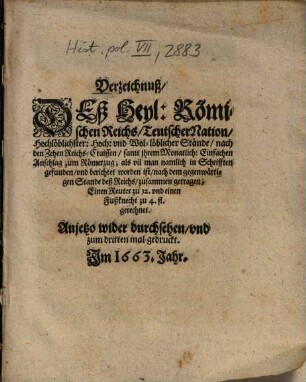 Hist. pol. VII, 2883
Verzeichnuß/
Deß Heyl: Römi-
schen Reichs/Teutscher Nation/
Hochlöblichster: Hoch: vnd Wol-löblicher Stände/ nach
den Zehen Reichs-Craissen/ samt jhrem Monatlich: Einfachen
Anschlag zum Römerzug; als vil man namlich in Schrifften
gefunden/vnd berichtet worden ist/nach dem gegenwärti-
gen Stande deß Reichs/zusammen getragen;
Einen Reuter zu 12. vnd einen
Fußknecht zu 4. fl.
gerechnet.
Anjetzo wider durchsehen/vnd
zum dritten mal gedruckt.
Im 1663. Jahr.